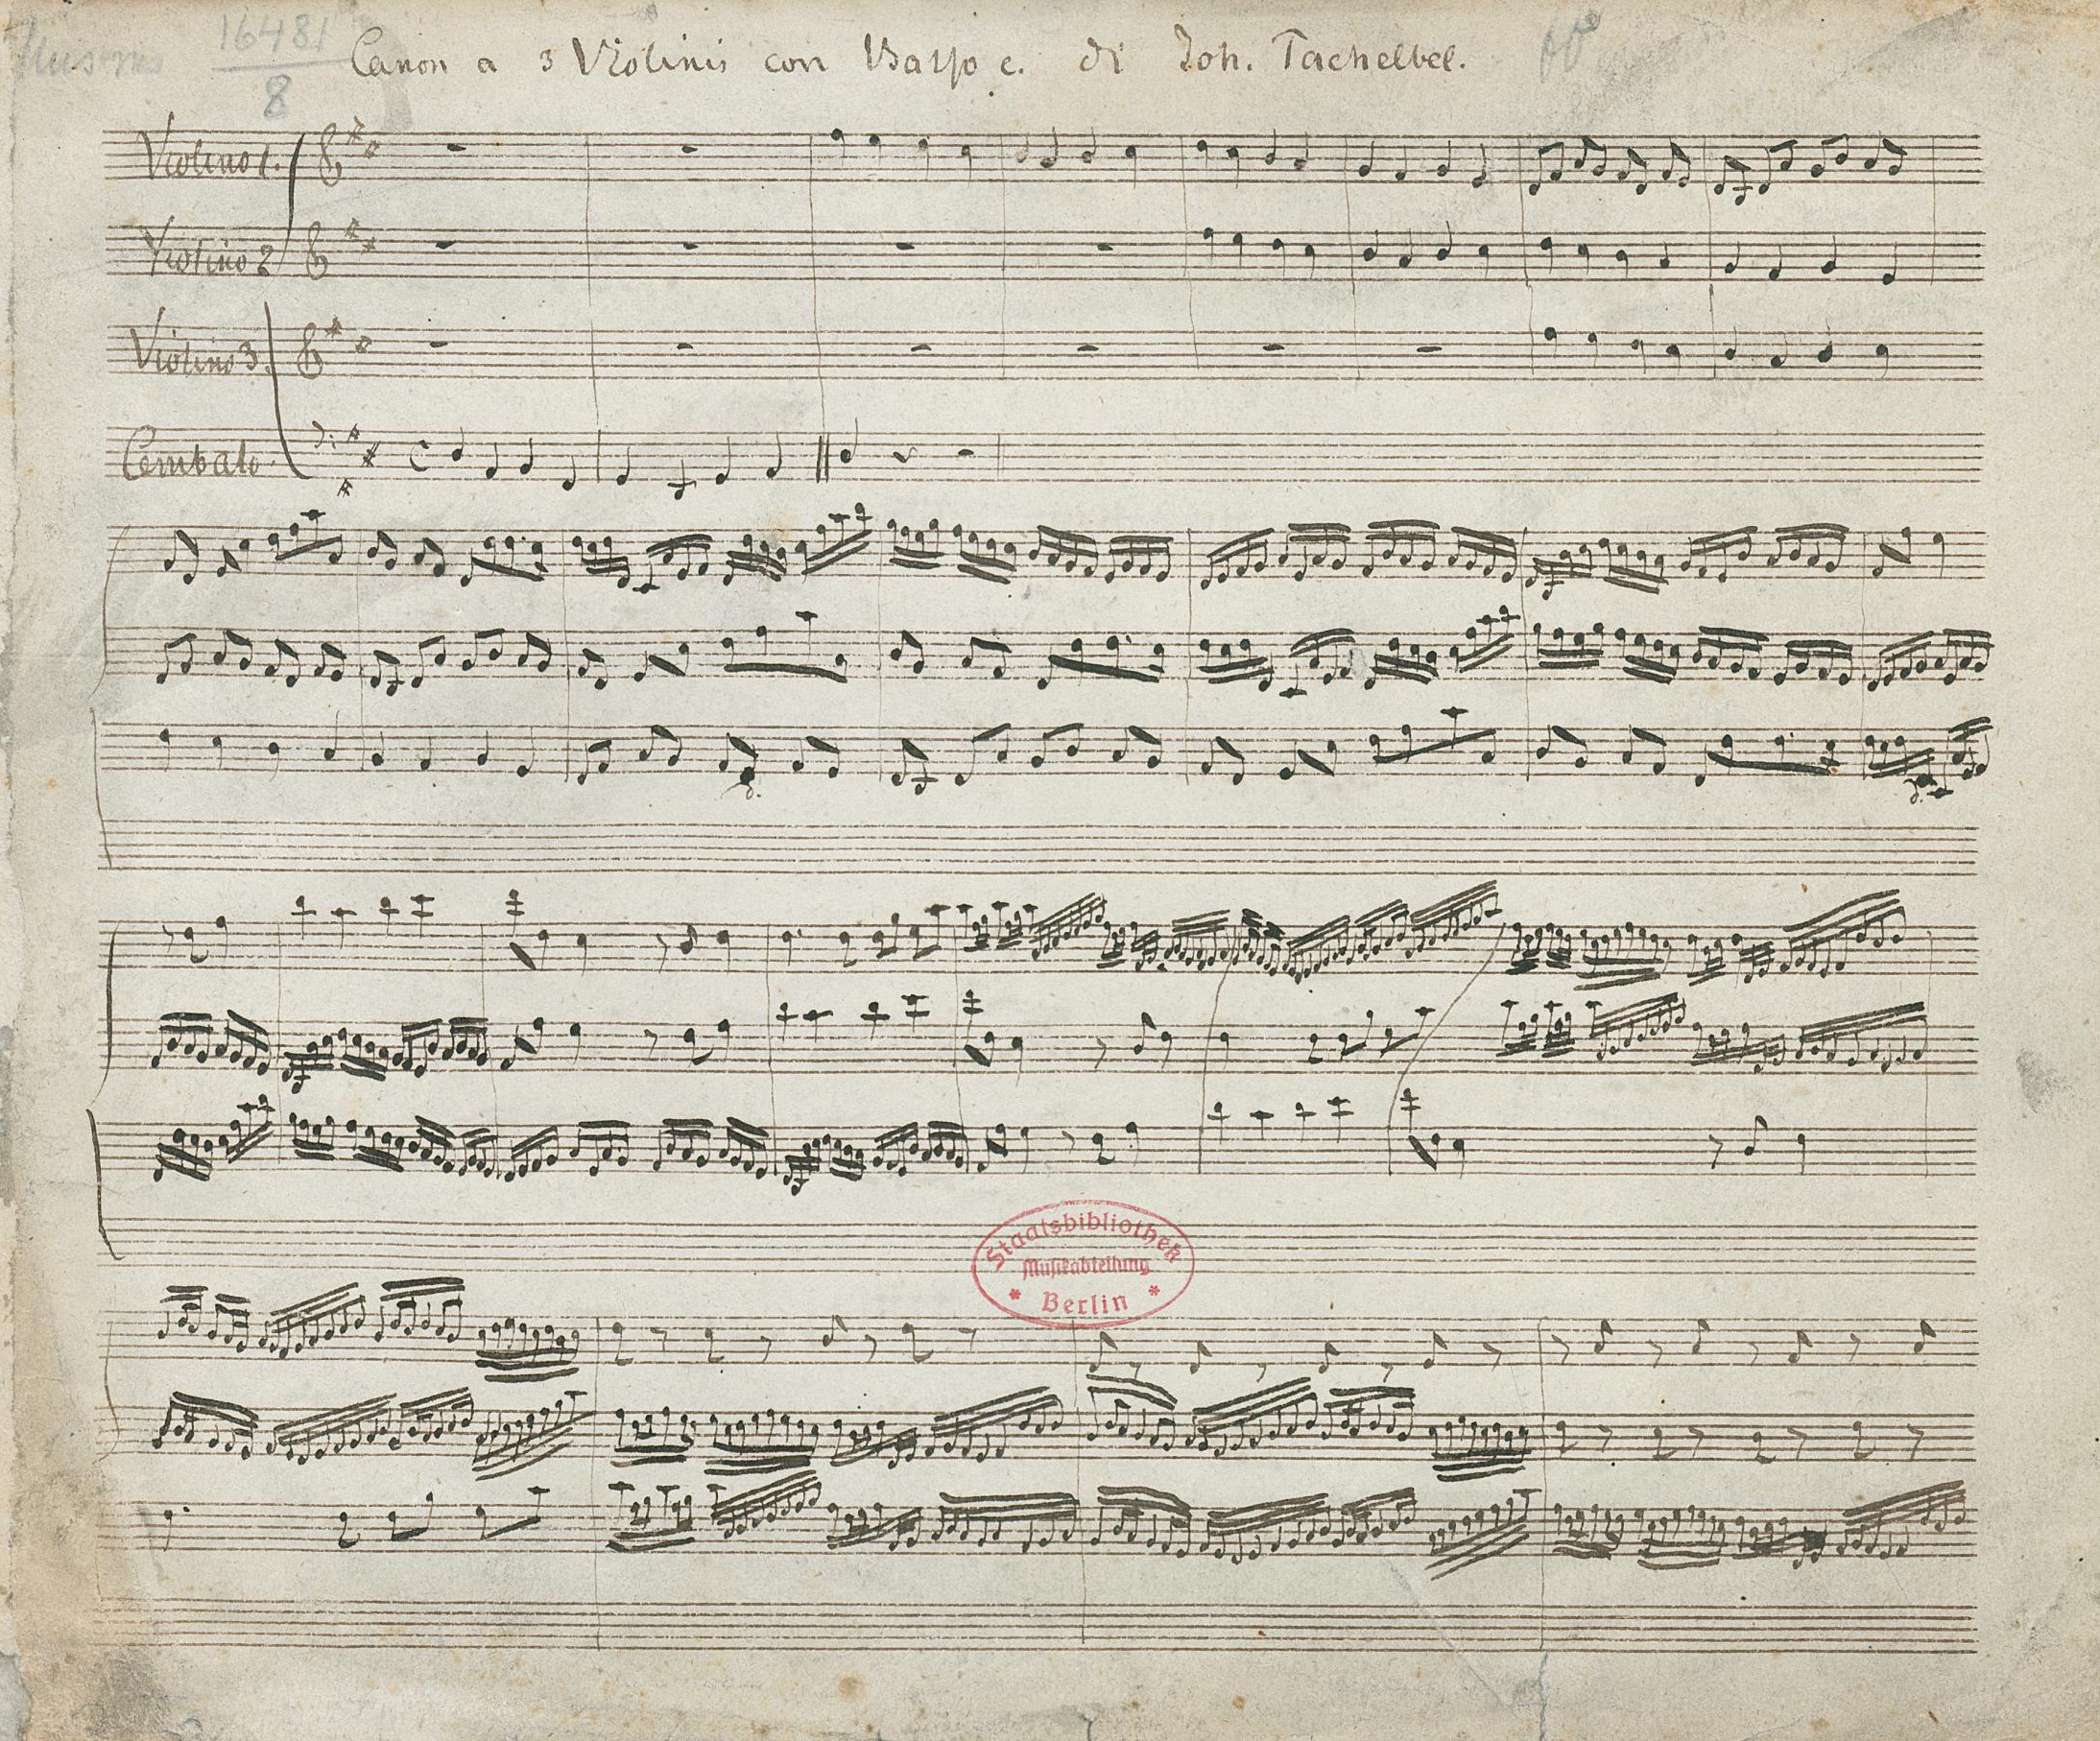 Mus. ms
16481
8
Canon a 3 Violinis con Basso c. di Joh. Pachelbel.
Violino 1.
Violino 2
Violino 3.
Cembalo.
C
d.
d.
Staatsbibliothek
Musikabteilung
* Berlin *